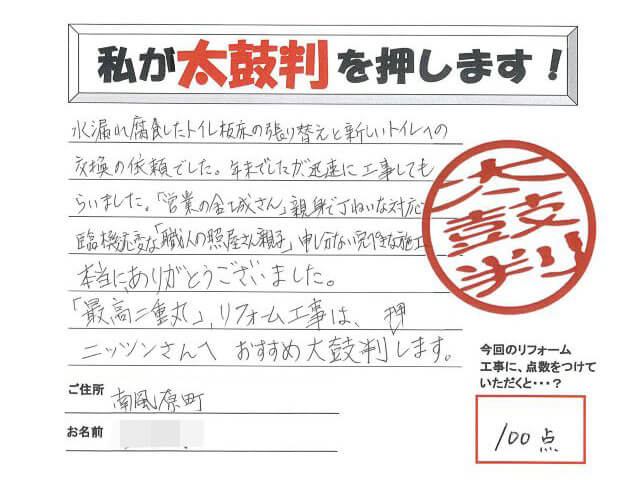 私が太鼓判を押します!
水漏れ腐食したトイレ板床の張り替えと新しいトイレへの
交換の依頼でした。年末でしたが迅速に工事しても
らいました。「営業の金城さん」親身で丁ねいな対応
臨機応変な「職人の照屋さん親子」申し分ない完ぺきな施工
本当にありがとうございました。
「最高二重丸」、リフォーム工事は、押
ニッツンさんへ おすすめ太鼓判します。
太鼓判
今回のリフォーム
工事に、点数をつけて
いただくと・・・?
100点
ご住所 南風原町
お名前